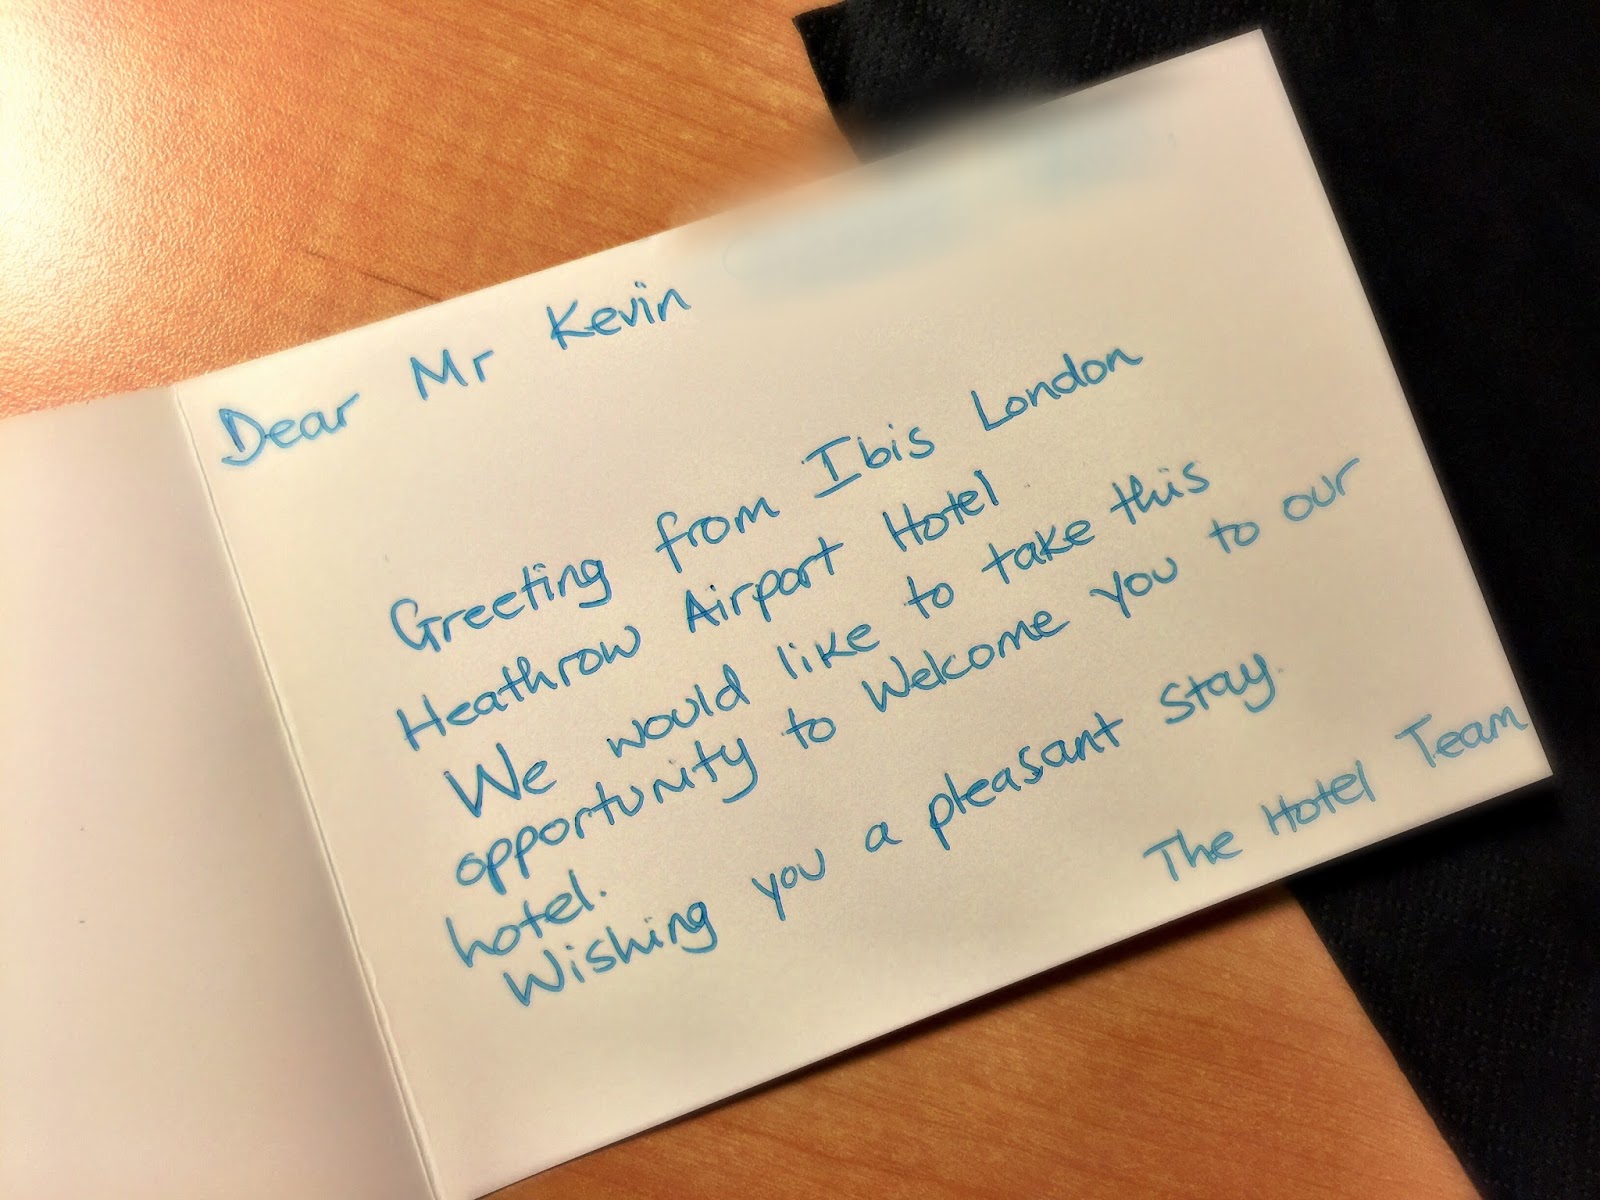 Dear Mr Kevin
Greeting from Ibis London
Heathrow Airport Hotel
We would like to take this
opportunity to Welcome you to our
hotel.
Wishing you a pleasant Stay.
The Hotel Team